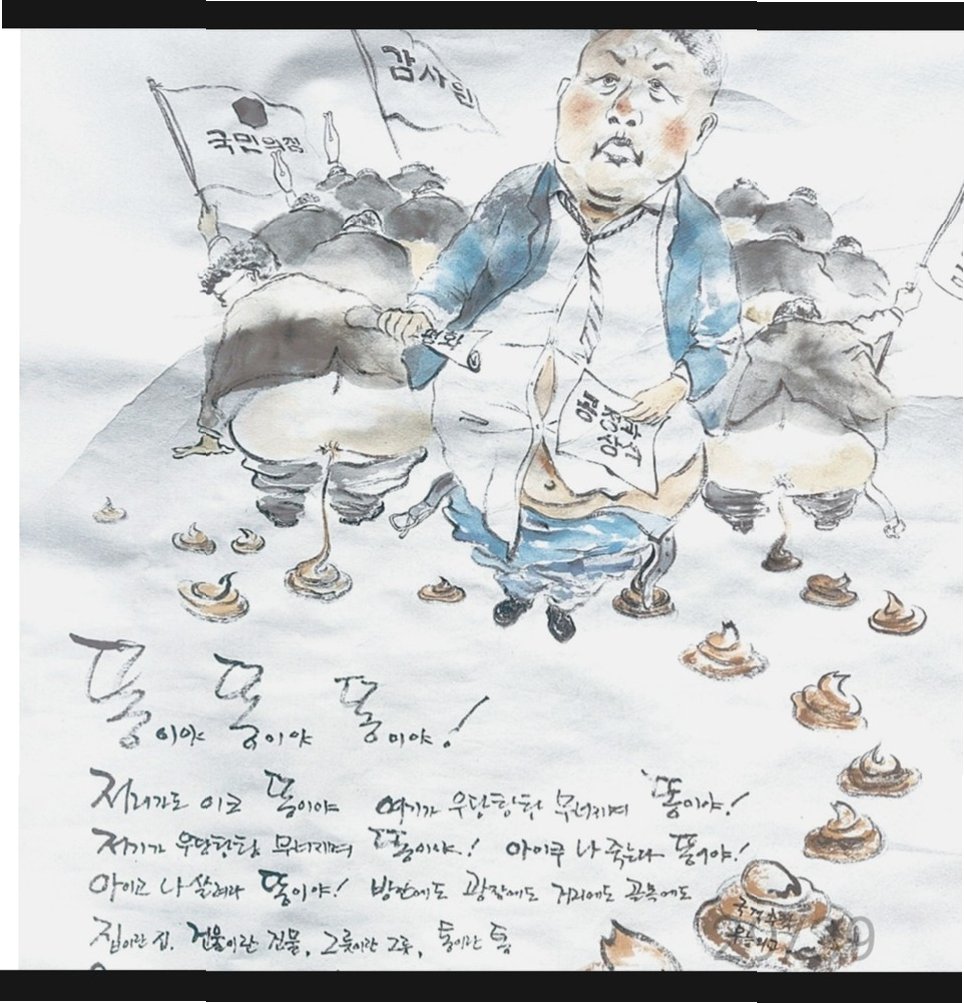 감사원
국민의정
평화
똥이야 똥이야 똥이야!
저리가도 이크 똥이야 여기가 우당탕탕 무너지며 똥이야!
저기가 우당탕탕 무너지며 똥이야! 아이쿠 나 죽는다 똥이야!
아이고 나 살려라 똥이야! 방안에도 광장에도 거리에도 골목에도
집이란 집, 건물이란 건물, 그릇이란 그릇, 통이란 통
국격추락